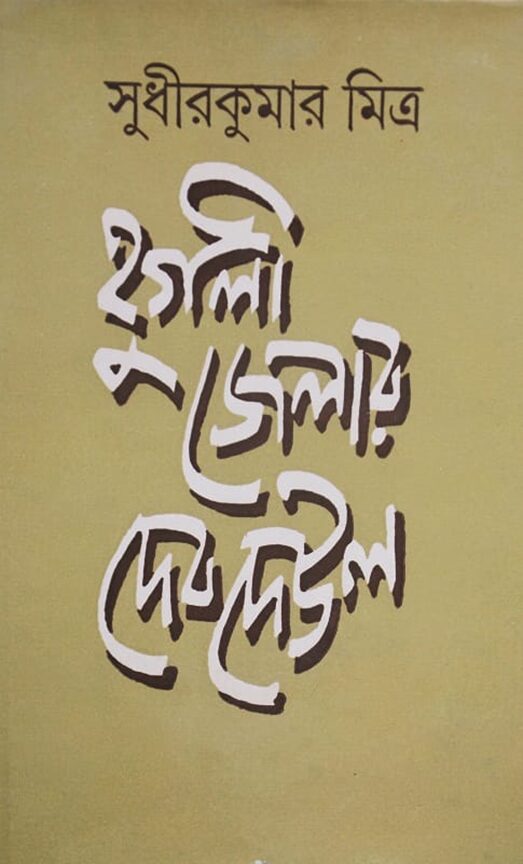 সুধীরকুমার মিত্র
হুগলী
জেলার
দেবদেউল